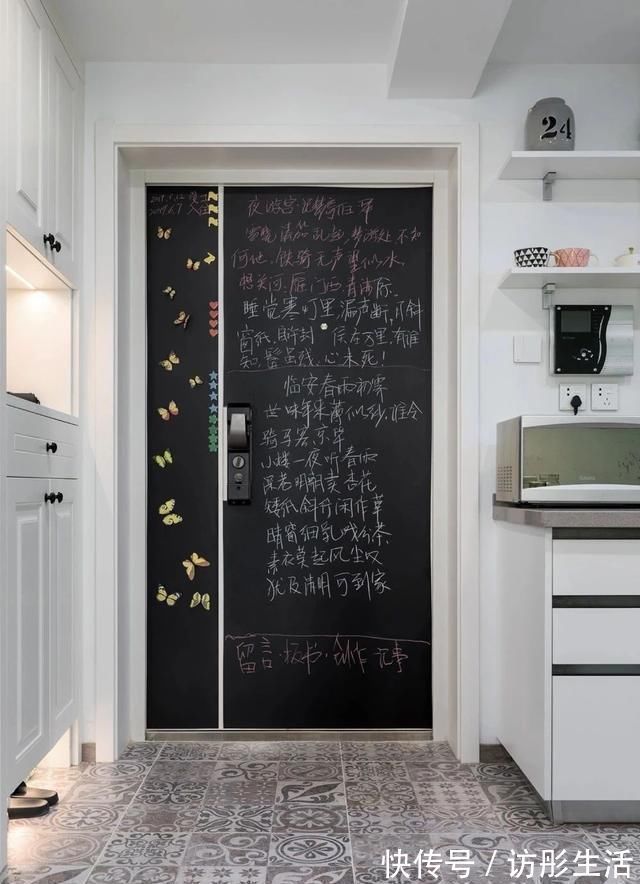 夜游宫·记梦寄伯
雪晓清笳乱起,梦游处,不知
何地.铁骑无声望似水,
想关河,雁门西,青海际.
睡觉寒灯里,漏声断,月斜
窗纸,自许封侯在万里,有谁
知,鬓虽残,心未死!
临安春雨初霁
世味年来薄似纱,谁令
骑马客京华
小楼一夜听春雨
深巷明朝卖杏花
矮纸斜行闲作草
晴窗细乳戏分茶
素衣莫起风尘叹
犹及清明可到家
留言·板书·创作·记事
24
快传号/访彤生活